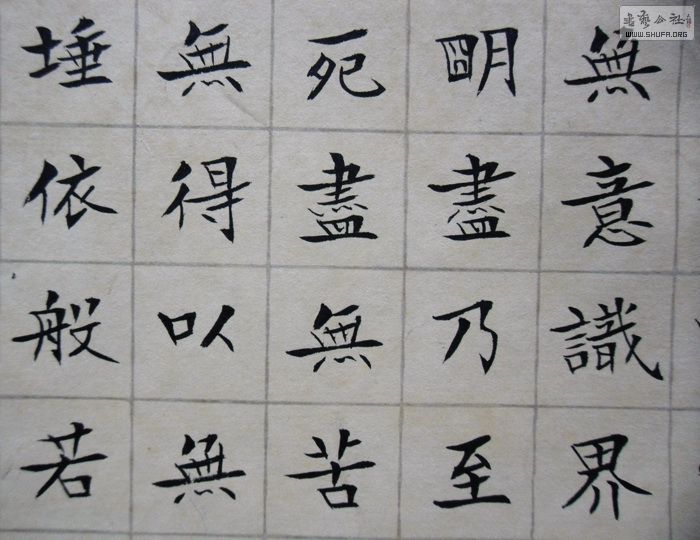 無意識界
明盡乃至
死盡無苦
無得以無
埵依般若
書藝公社
WWW.SHUFA.ORG